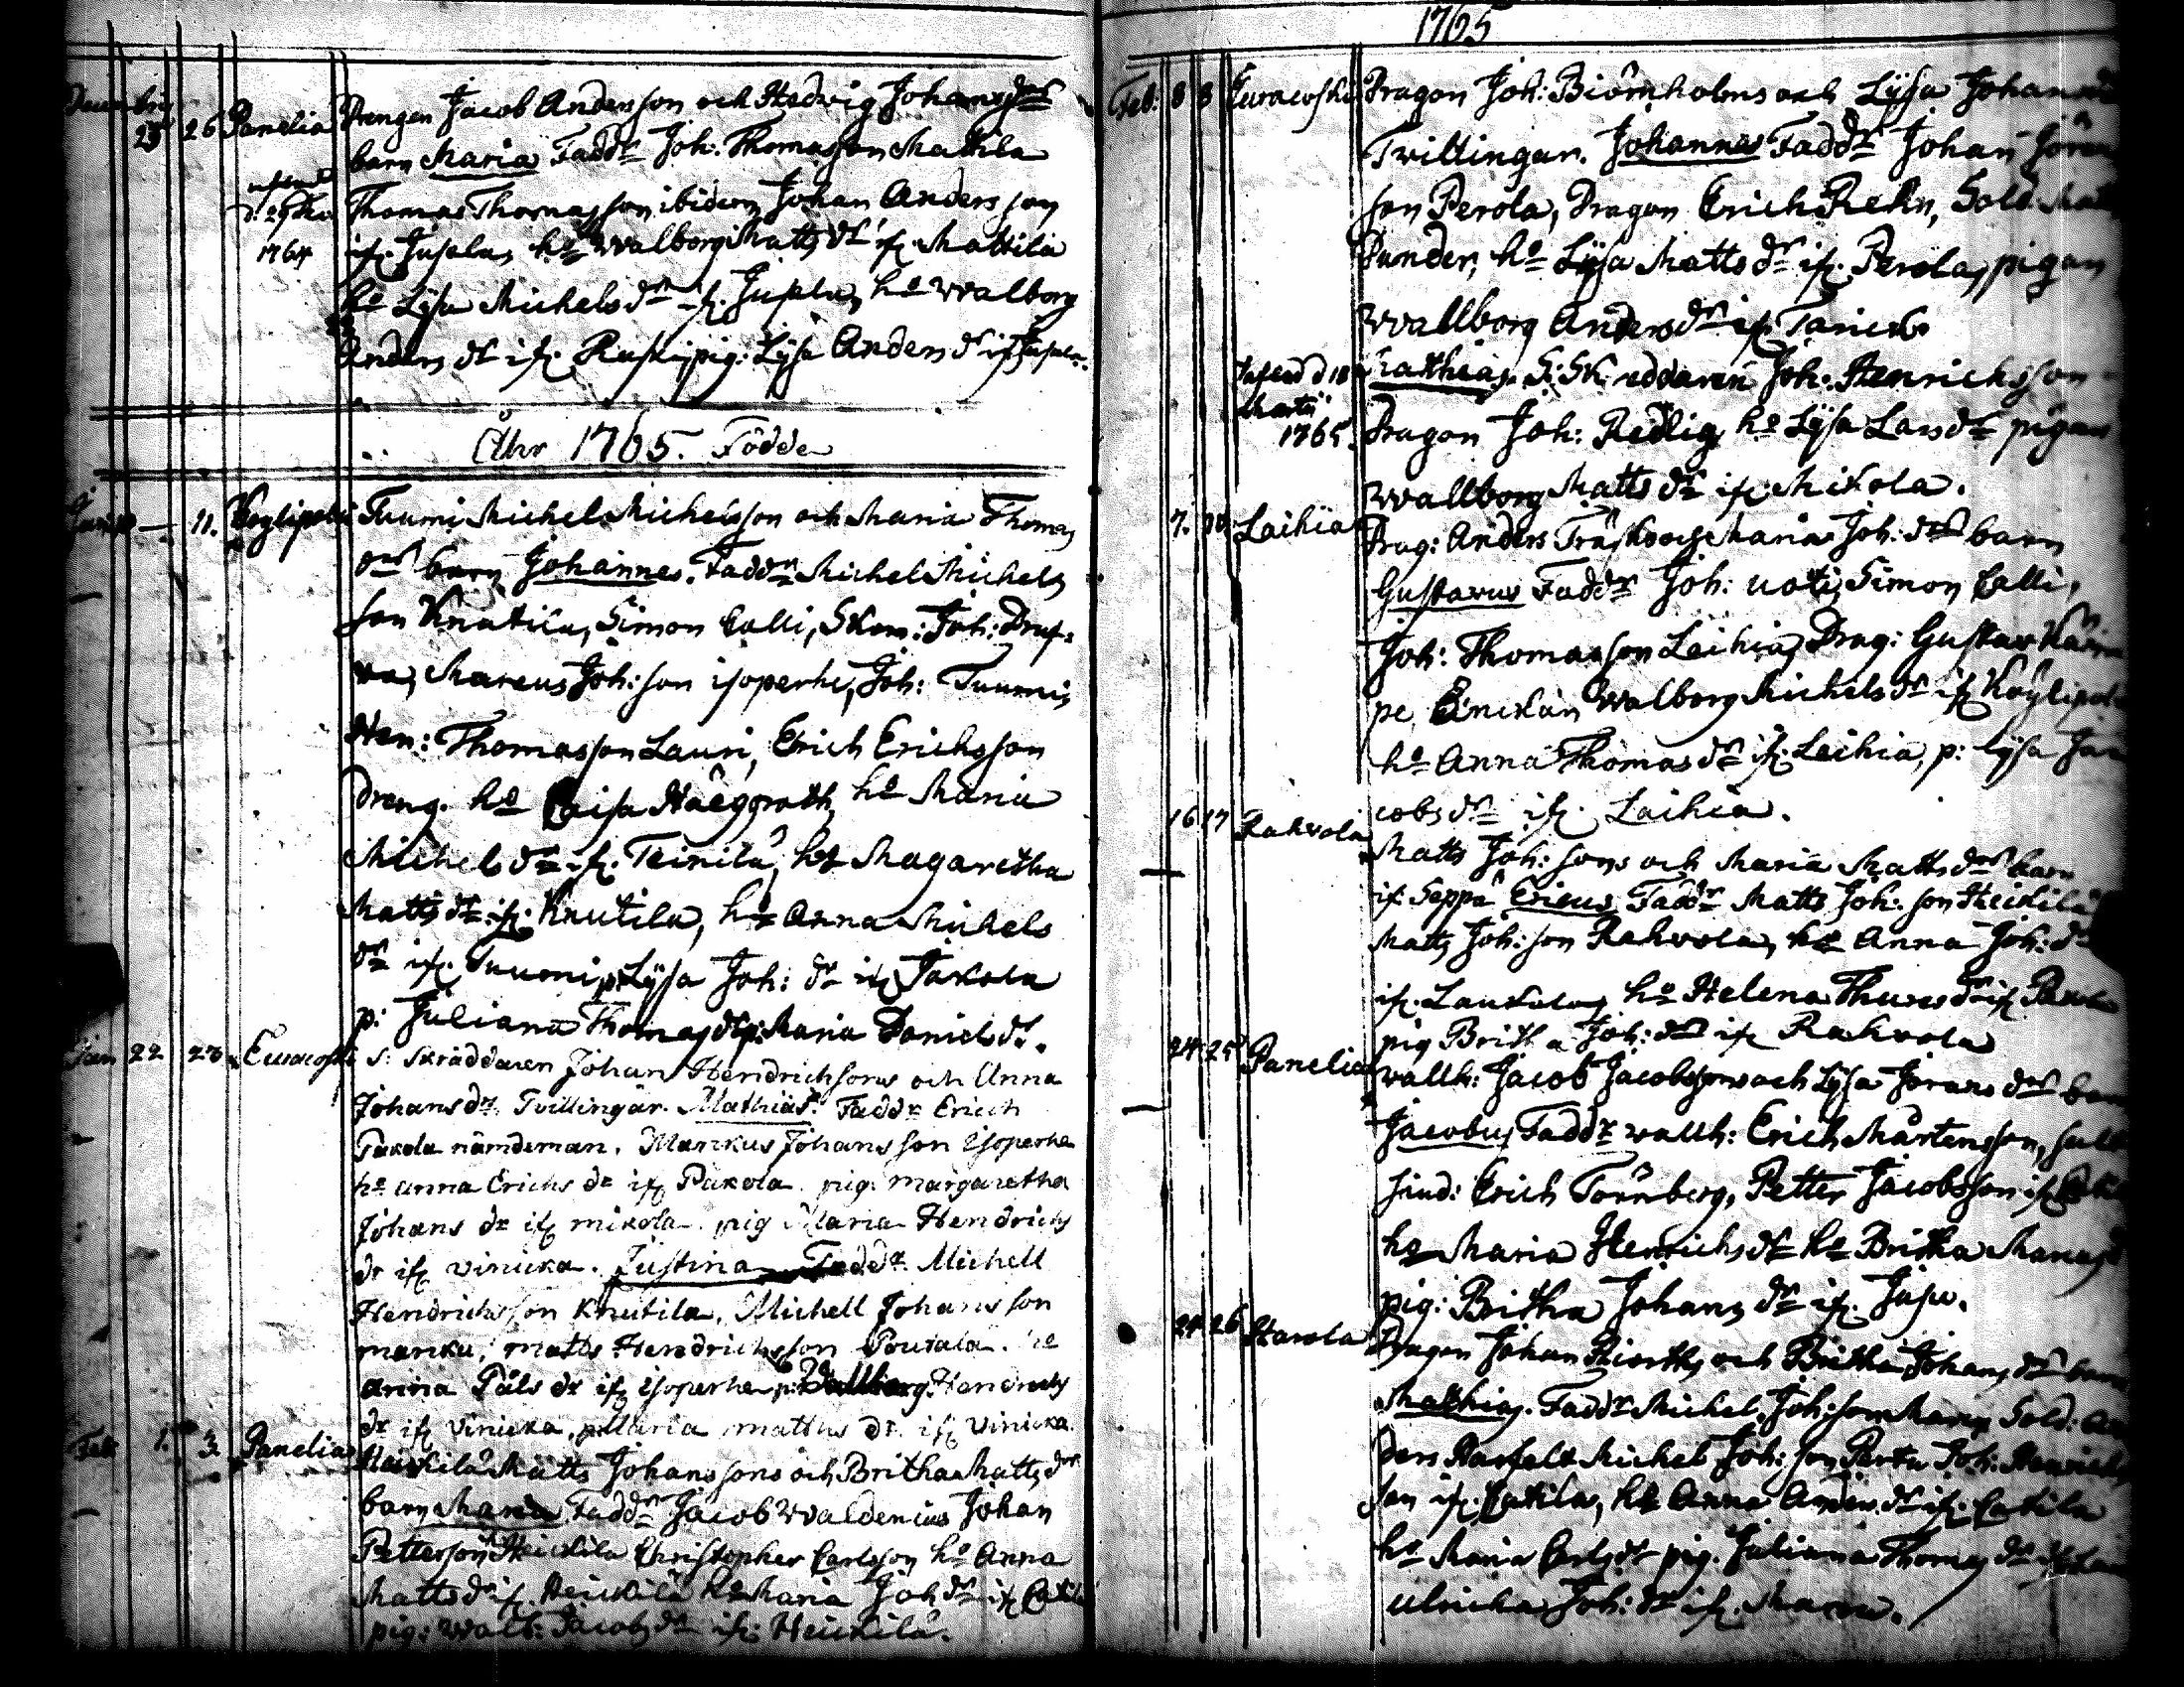 Decembris
25 26 Panelia Drengen Jacob Andersson och Hedwig Johans drs
barn Maria Faddr Joh: Thomasson Mattila
Thomas Thomasson ibidem, Johan Andersson
d. 29 1764
if. Jusela, ho Walborg Matts dr if. Mattila
ho Lysa Michels dr if. Jusela, ho Walborg
Anders dr if. Ruski, pig: Lysa Anders dr if Jusela.
Åhr 1765. Födde
11. Köylipolvi Tuumi Michel Michelsson och Maria Thomas
drs barn Johannes. Faddr Michel Michels
son Knutila, Simon Calli, Skom: Joh:
Marcus Joh: son isoperhe, Joh: Tuumi,
Hen: Thomasson Lauri, Erich Erichsson
dreng. ho Caisa Häggroth, ho Maria
Michels dr if. Teinilä, ho Magaretha
Matts dr if. Knutila, ho Anna Michels
dr if. Tuumi, p. Lysa Joh: dr if Jakola
p: Juliana Thomas dr p: Maria Daniels dr.
Jan 22 23 Euracoski S: Skräddaren Johan Hendrichsons och Anna
Johans dr. Tvillingar. Mathias. Faddr Erich
Pakola nämdeman. Markus Johansson isoperhe
ho Anna Erichs dr if Pakola. pig: margaretha
Johans dr if mikola. pig Maria Hendrichs
dr if vinicka. Justina Faddr. Michell
Hendrichsson Knutila, Michell Johansson
manku, matts Hendrichsson Poutala. ho
anna Påls dr if isoperhe p: Wallborg Hendrichs
dr if vinicka, p Maria matthis dr. if vinicka.
Feb 1. 3. Panelia Heickilä Matts Johanssons och Britha Matts drs
barn Maria Faddr Jacob Waldenius Johan
Pettersson Heickilä Christopher Carlsson ho Anna
Matts dr if. Heickilä ho Maria Joh dr if
pig: Walb: Jacobs dr if: Heickilä.
1765
Feb: 8 8 Euracoski Dragon Joh: Biörnholms och Lysa Johans
Tvillingar. Johannes Faddr Johan Jören
son Perola, Dragon Erich Rehn, Sold:
Punder, ho Lysa Matts dr if. Perola, pigan
Wallborg Anders dr if.
d 18 Martii 1765. Mathias. S: Skreddaren Joh: Henrichsson
Dragon Joh: Redlig, ho Lysa Lars dr pigan
Wallborg Matts dr if. Mikola.
7. 10. Laihia Drag: Anders Träsk och Maria Joh: drs barn
Gustavus Faddr Joh: Uoti, Simon Calli,
Joh: Thomasson Leihia, Drag: Gustav
Enckan Walborg Michels dr if Köylipol
ho Anna Thomas dr if. Leihia, p: lysa Ja
cobs dr if. Laihia.
16 17 Rahvola Matts Joh: sons och Maria Matts drs barn
if. Seppä Ericus Faddr Matts Joh: son Heickilä
Matts Joh: son Rahvola, ho Anna Joh: dr
if. Laukola, ho Helena Thures dr if
pig Britha Joh: dr if Rahvola
24 25 Panelia Wallh: Jacob Jacobssons och Lysa Jörans drs barn
Jacobus Faddr wallh: Erich Mårtensson,
Erich Törnberg, Petter Jacobsson if
ho Maria Henrichs dr ho Britha
pig: Britha Johans dr if. Jusu.
24 26 Dragon Johan och Britha Johans drs barn
Mathias. Faddr Michel Joh: son Sold: An
ders Michel Joh: son Joh: Henrichs
son if. ho Anna Anders dr if.
ho Maria Carls dr pig. Juliana Thomas dr if
Ulricka Joh: dr if.